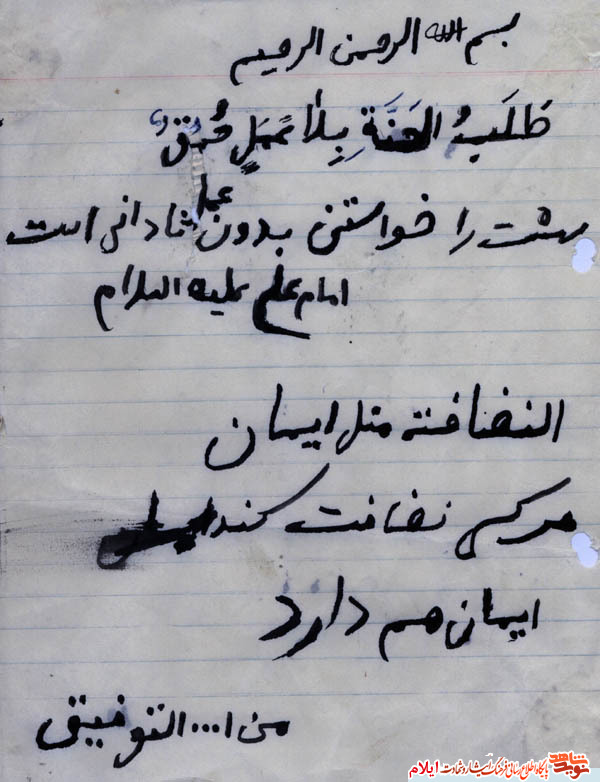 بسم الله الرحمن الرحیم
طَلَبُ الجَنَّةِ بِلا عَمَلٍ حُمْقٌ
بهشت را خواستن بدون عمل نادانی است
امام علی علیه السلام
النضافته مثل ایمان
هرکس نضافت کند
ایمان هم دارد
من ا... التوفیق
نوید شاهد
پایگاه اطلاع رسانی فرهنگ ایثار و شهادت ایلام